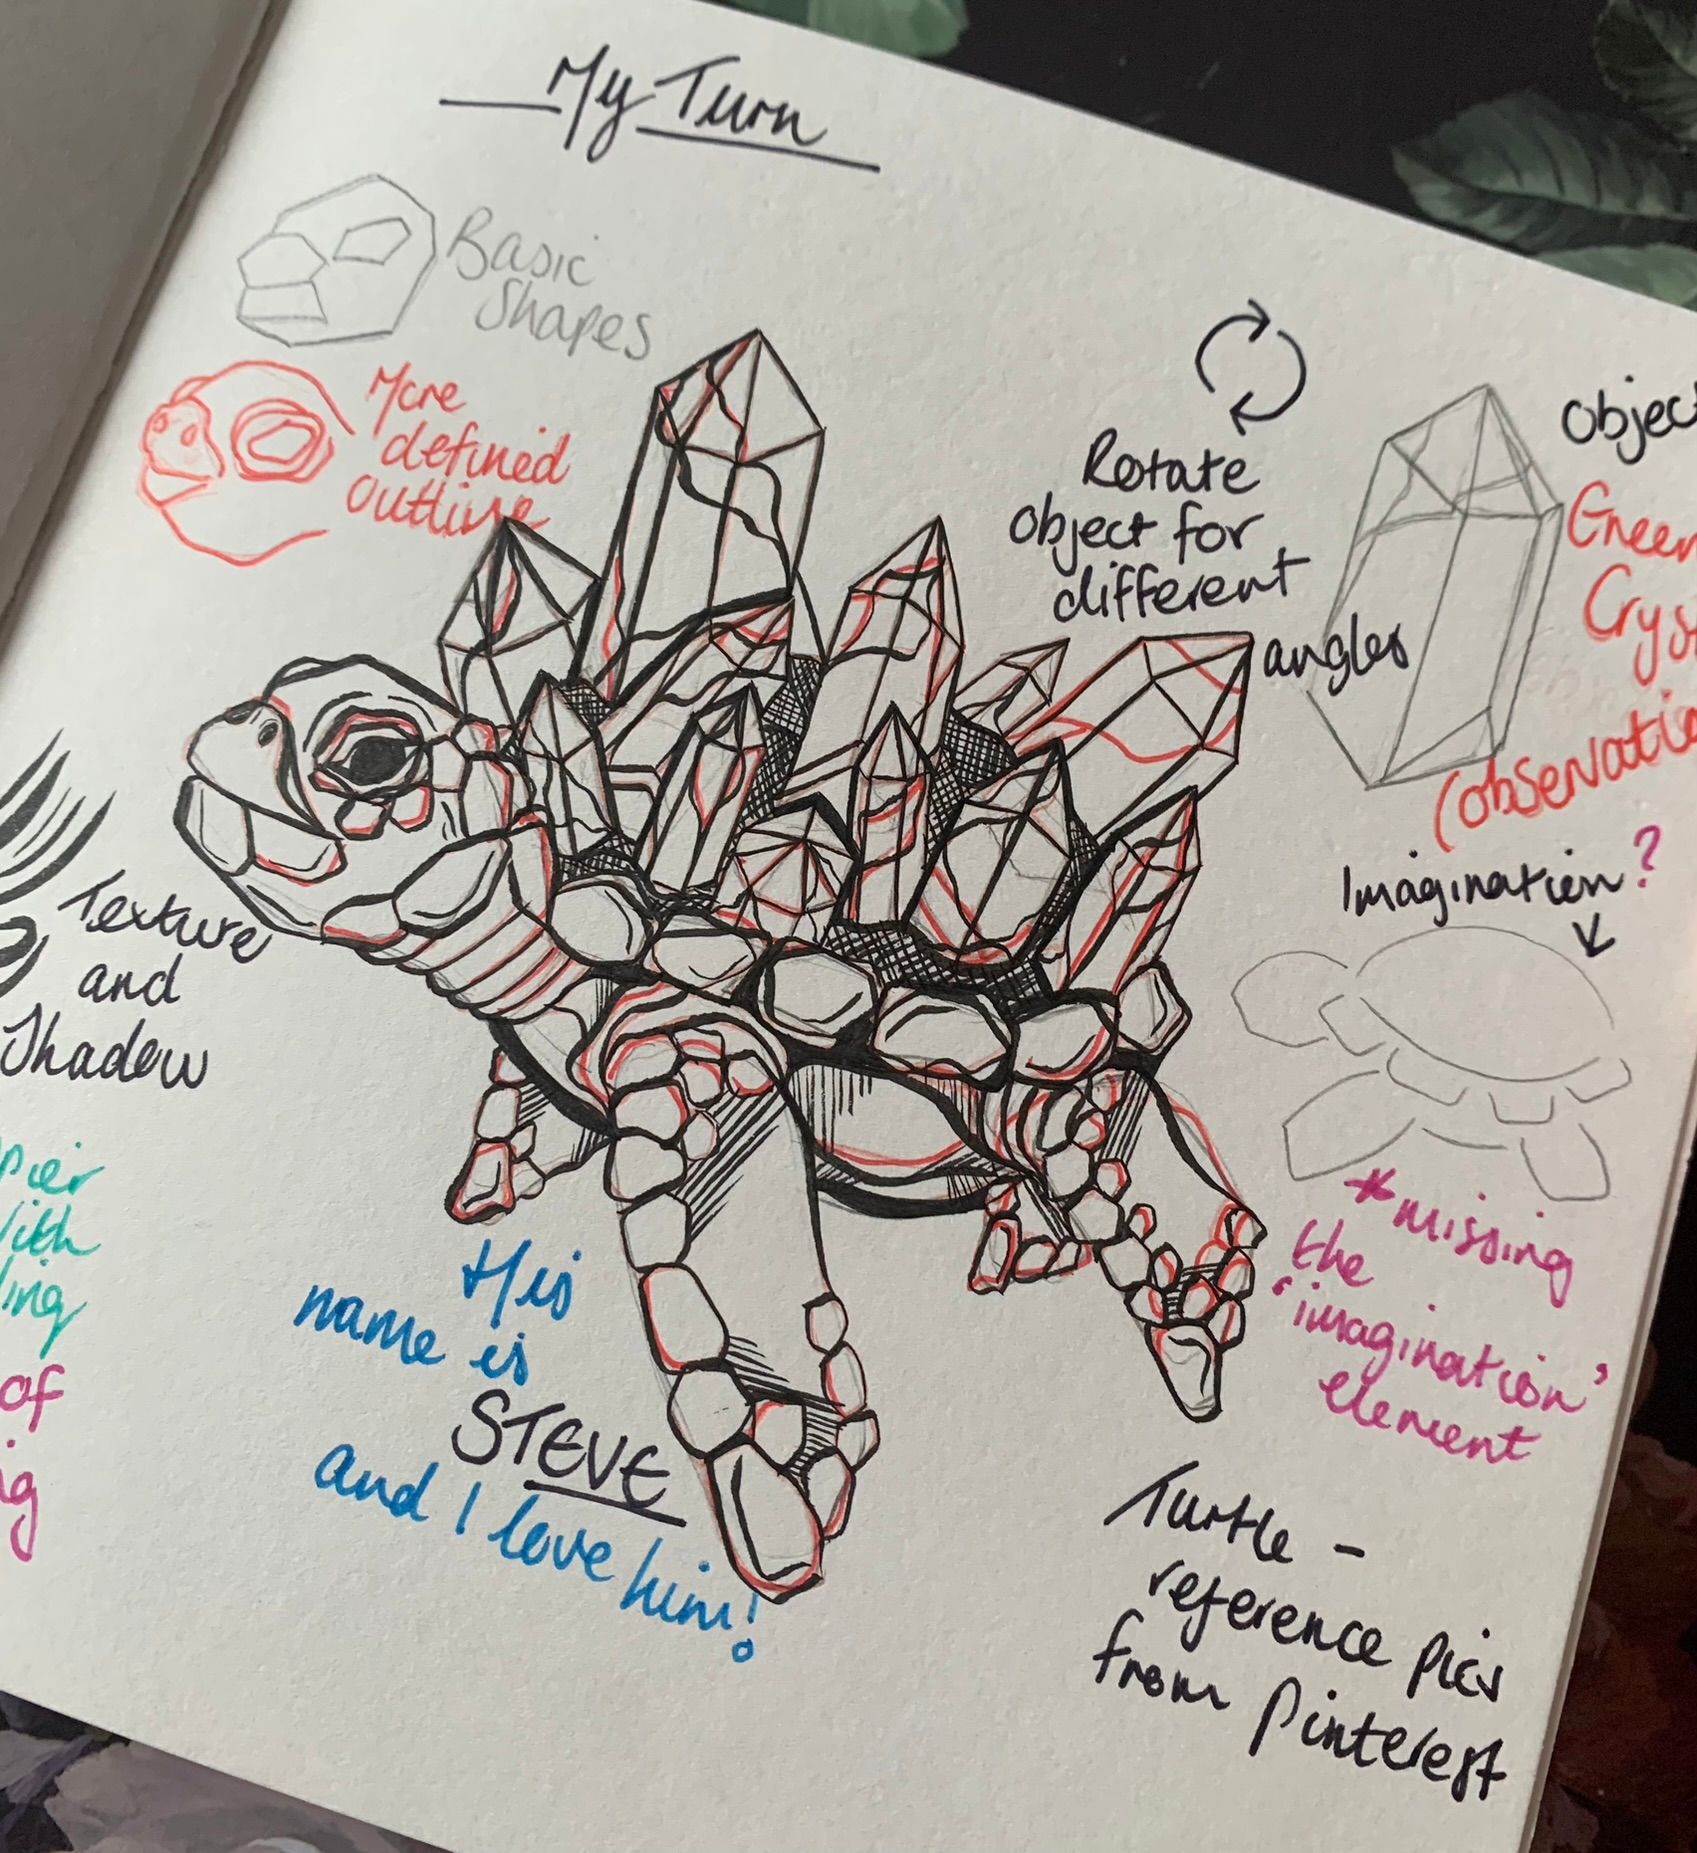 My Turn
Basic
Shapes
More
defined
outline
Rotate
object for
different
angles
Object
Green
Crys
(observatio
Imagination?
Texture
and
Shadow
with
of
His
name is
STEVE
and I love him!
*missing
the
'imagination'
element
Turtle -
reference pics
from Pinterest